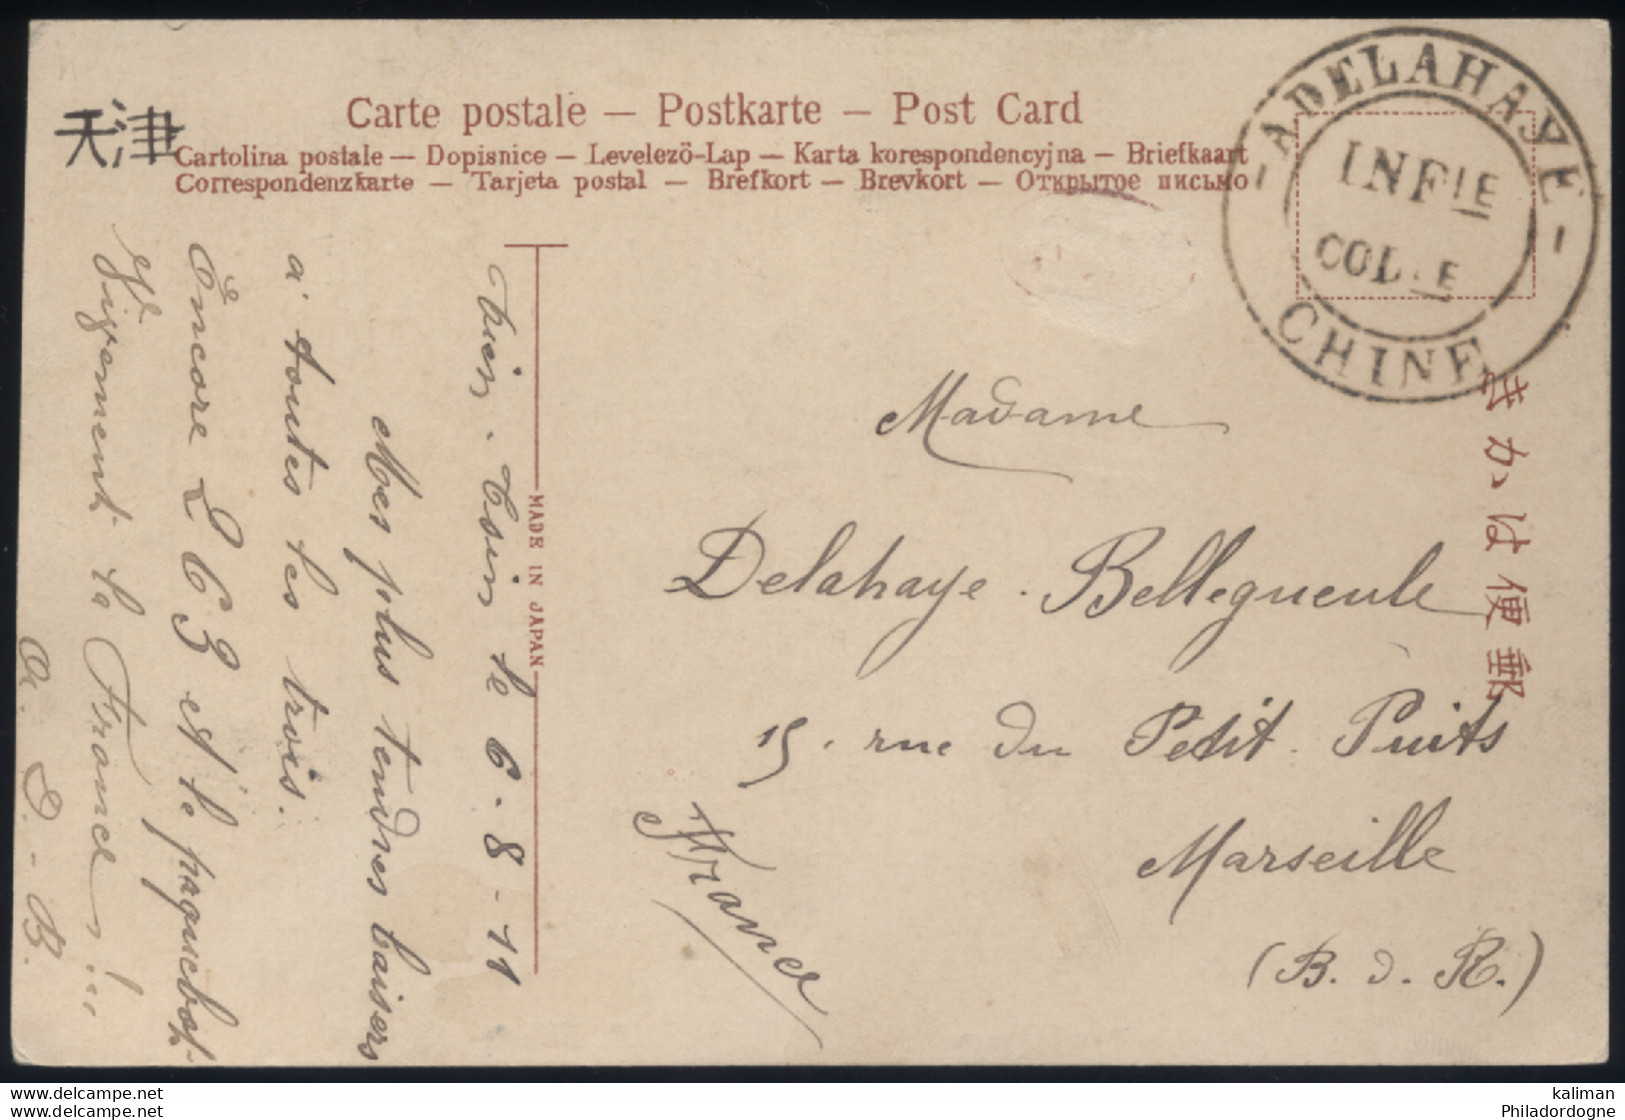 Carte postale — Postkarte — Post Card
Cartolina postale — Dopisnice — Levelezö-Lap — Karta korespondencyjna — Briefkaart
Correspondenzkarte — Tarjeta postal — Brefkort — Brevkort — Открытое письмо
天津
- ADELAHAYE -
INFIE
COLIE
CHINE
きかは便郵
MADE IN JAPAN
Tien-Tsin le 6-8-11
Mes plus tendres baisers
à toutes les trois.
Encore 263 et le paquebot
Vivement la France !...
A. D-B.
Madame
Delahaye-Bellegueule
15, rue du Petit Puits
Marseille
(B. d. R.)
France
www.delcampe.net
kaliman
Philadordogne